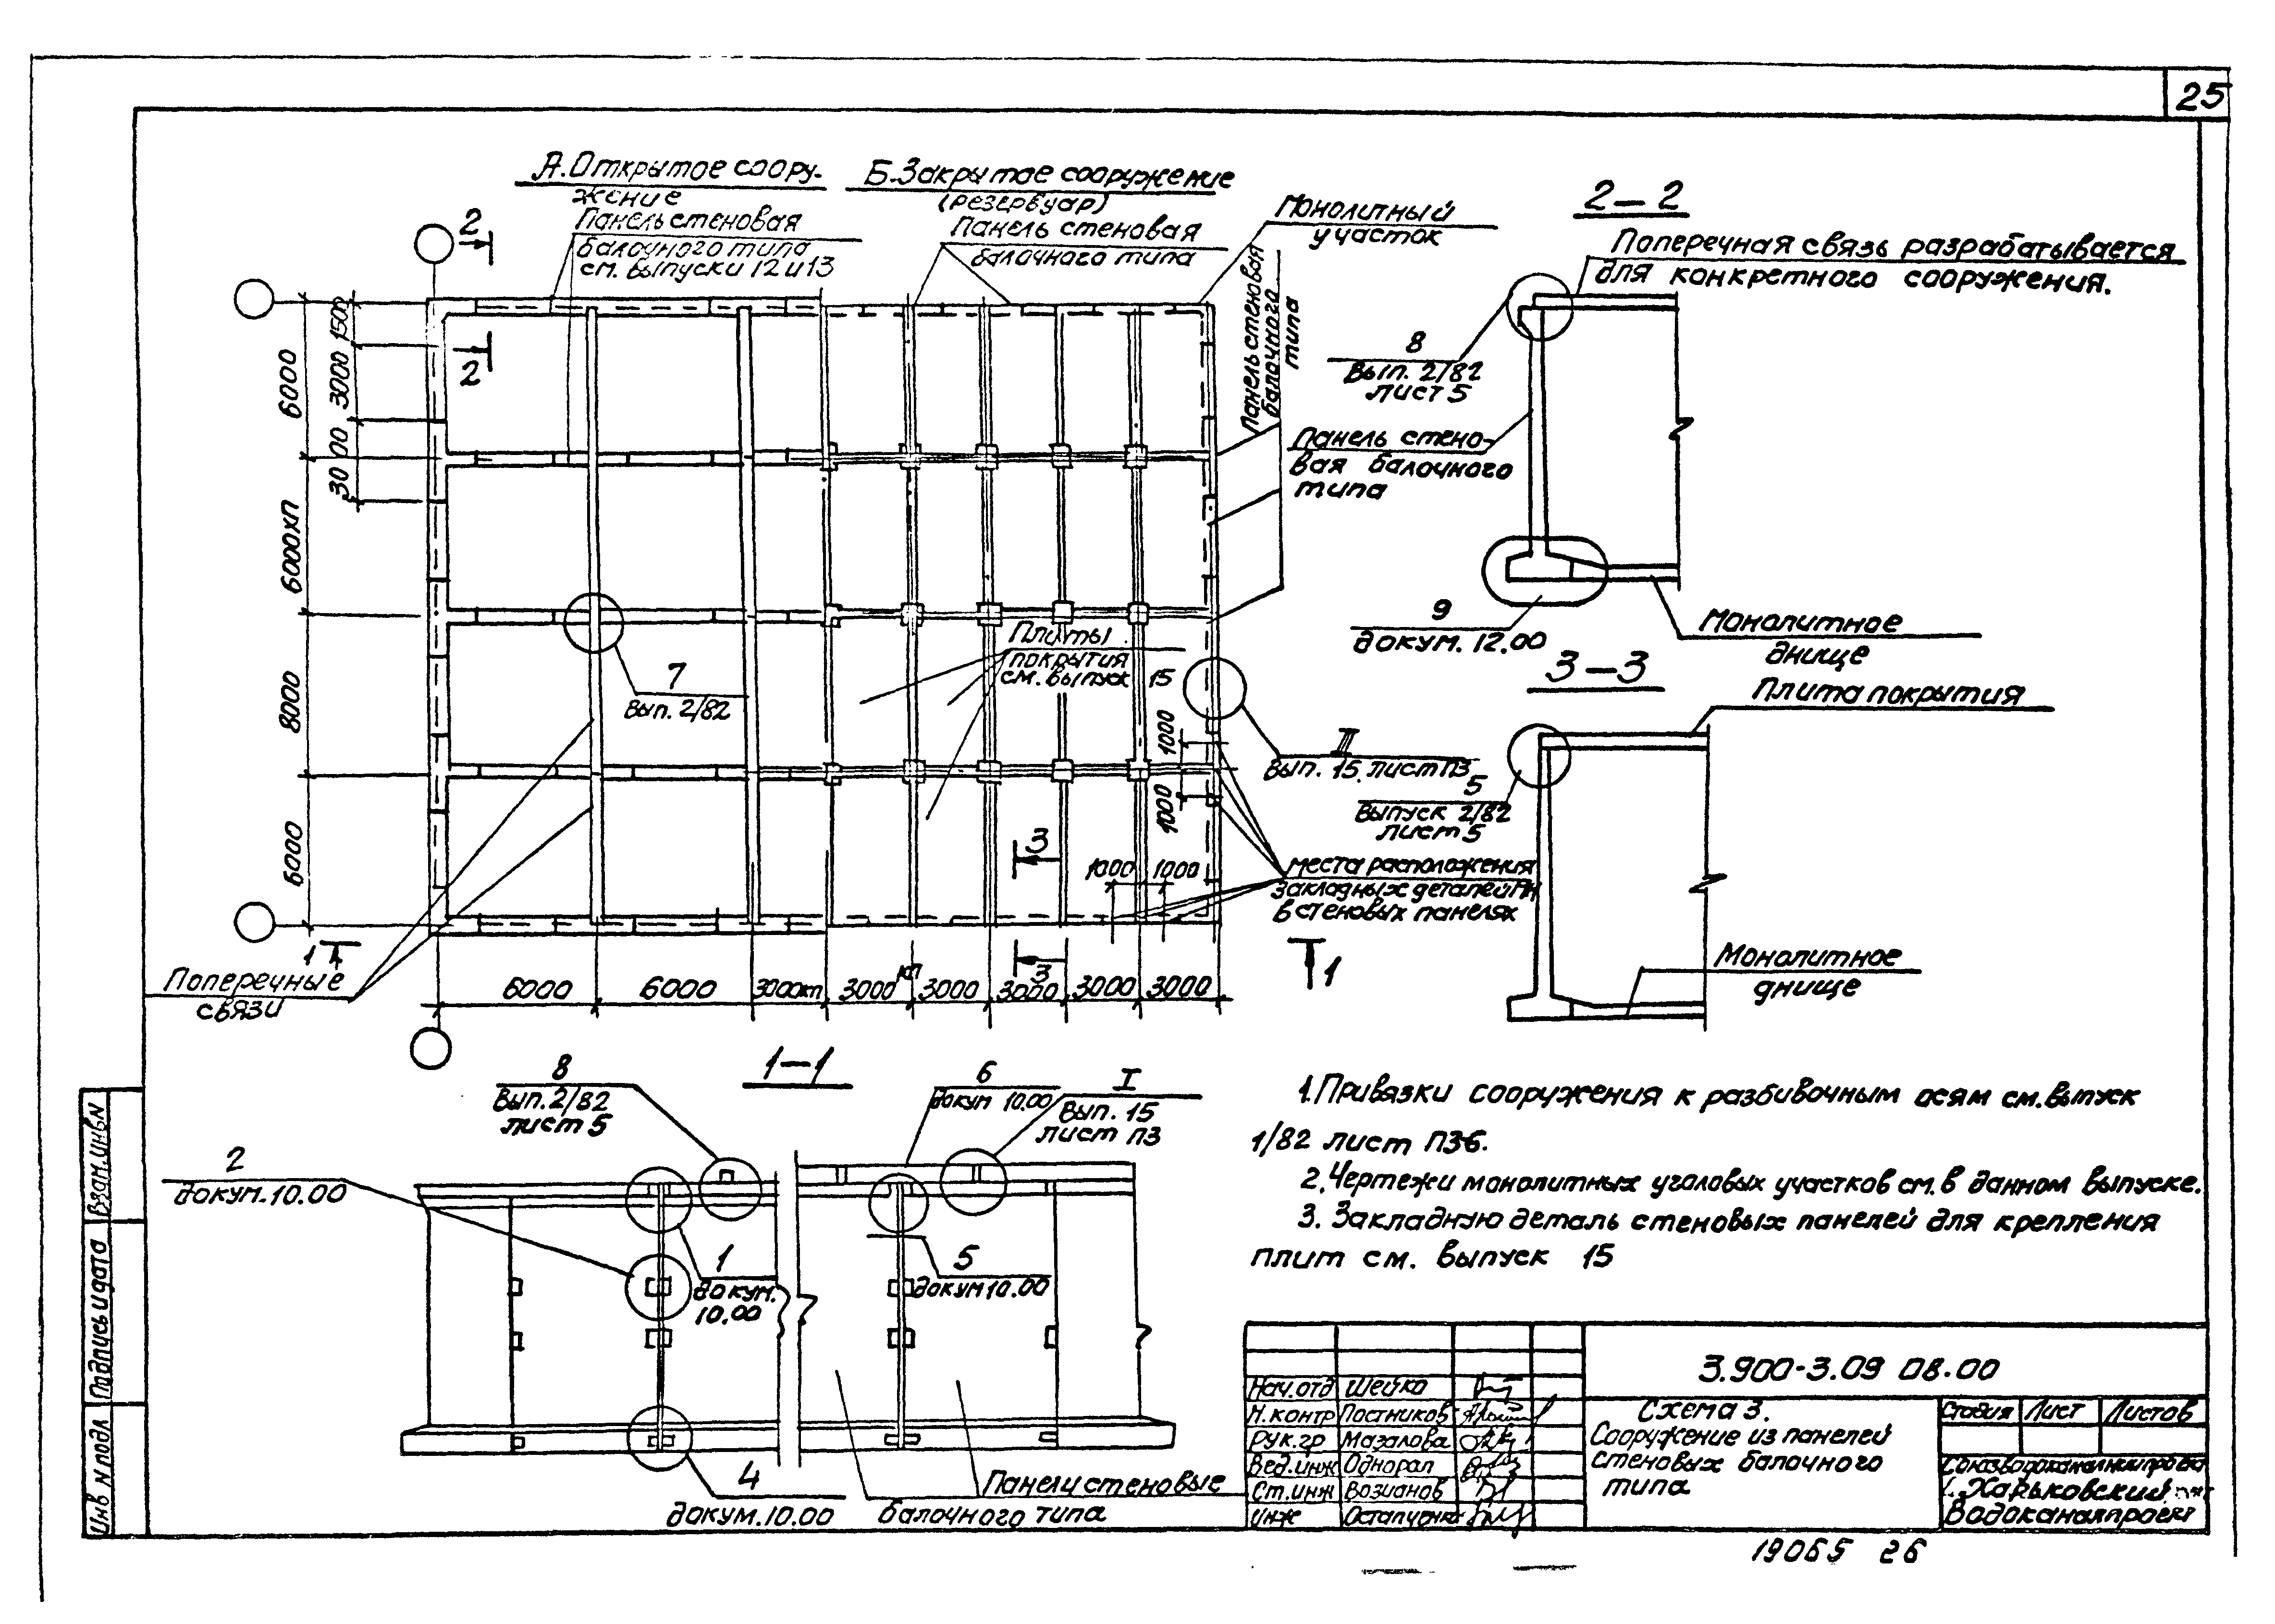 25
А. Открытое соору-
жение
Панель стеновая
балочного типа
см. выпуски 12 и 13
Б. Закрытое сооружение
(резервуар)
Панель стеновая
балочного типа
Монолитный
участок
Панель стеновая
балочного
типа
2
2
6000
6000хп
8000
6000
1500
3000
30 00
7
Вып. 2/82
Плиты
покрытия
см. выпуск 15
1000
1000
1000 1000
3
3
III
Вып. 15 лист П3
места расположения
закладных деталей
в стеновых панелях
1
1
Поперечные
связи
6000 6000 3000 3000 3000 3000 3000 3000
2–2
Поперечная связь разрабатывается
для конкретного сооружения.
8
Вып. 2/82
лист 5
Панель стено-
вая балочного
типа
9
докум. 12.00
Монолитное
днище
3–3
Плита покрытия
5
выпуск 2/82
лист 5
Монолитное
днище
1–1
8
Вып. 2/82
лист 5
6
докум 10.00
I
Вып. 15
лист П3
2
докум. 10.00
1
докум.
10.00
5
докум 10.00
4
докум. 10.00
Панели стеновые
балочного типа
1. Привязки сооружения к разбивочным осям см. выпуск
1/82 лист П36.
2. Чертежи монолитных угловых участков см. в данном выпуске.
3. Закладную деталь стеновых панелей для крепления
плит см. выпуск 15
Взам. инв N
Подпись и дата
Инв N подл
Нач. отд Шейко
Н. контр Постников
Рук. гр Мазалова
Вед. инж Однорал
Ст. инж Возианов
Инж
3.900-3.09 08.00
Схема 3.
Сооружение из панелей
стеновых балочного
типа
Стадия Лист Листов
Союзводоканалниипроект
Харьковский
Водоканалпроект
19065 26